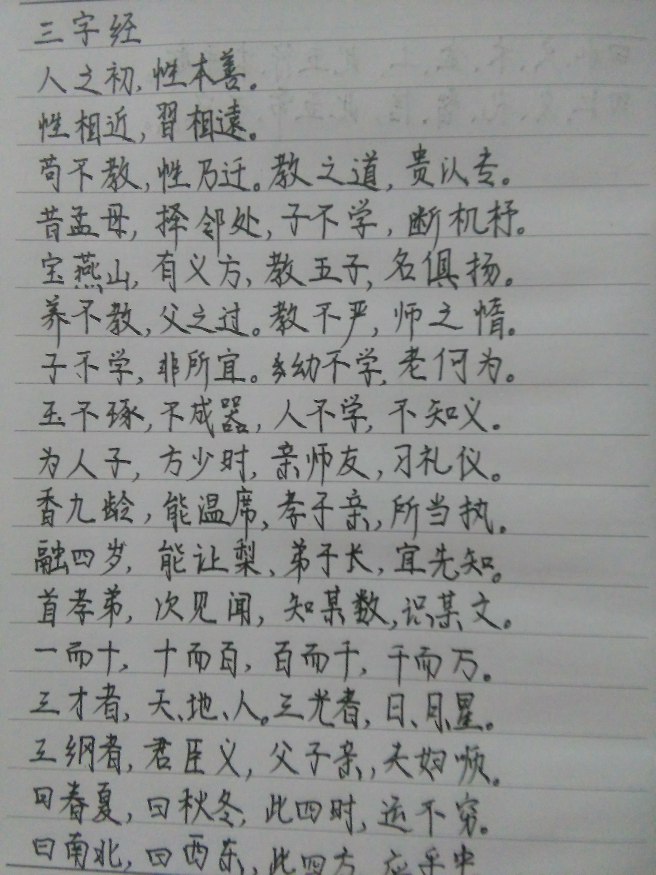 三字经
人之初,性本善。
性相近,習相遠。
苟不教,性乃迁。教之道,贵以专。
昔孟母,择邻处,子不学,断机杼。
宝燕山,有义方,教五子,名俱扬。
养不教,父之过。教不严,师之惰。
子不学,非所宜。幼不学,老何为。
玉不琢,不成器,人不学,不知义。
为人子,方少时,亲师友,习礼仪。
香九龄,能温席,孝于亲,所当执。
融四岁,能让梨,弟于长,宜先知。
首孝弟,次见闻,知某数,识某文。
一而十,十而百,百而千,千而万。
三才者,天、地、人。三光者,日、月、星。
三纲者,君臣义,父子亲,夫妇顺。
曰春夏,曰秋冬,此四时,运不穷。
曰南北,曰西东,此四方,应乎中